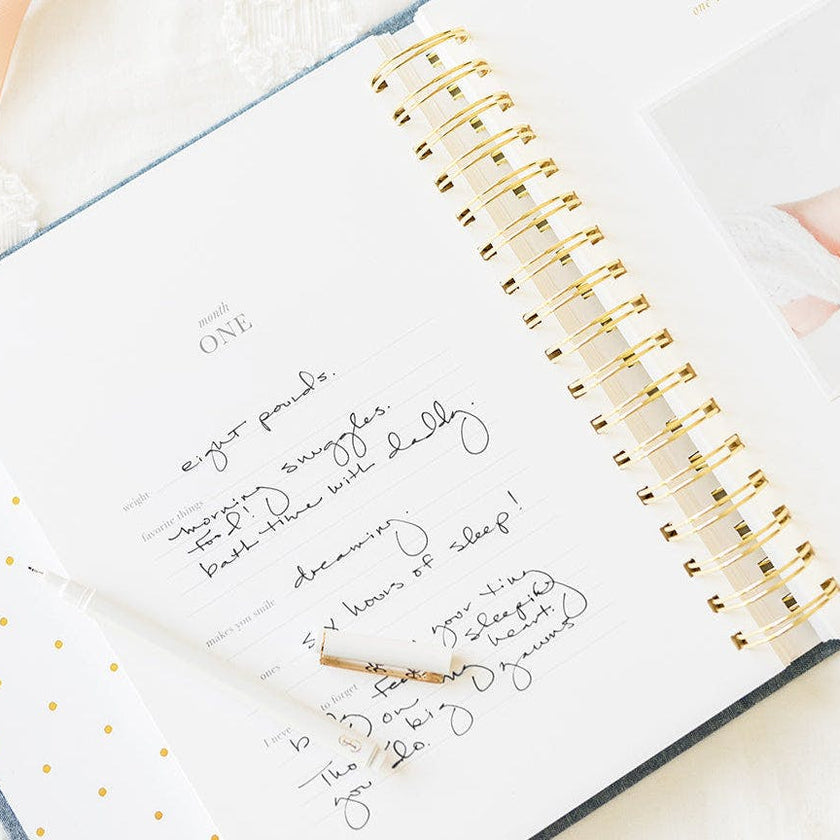 one
month
ONE
weight eight pounds.
favorite things morning snuggles.
food!
bath time with daddy.
makes you smile dreaming.
six hours of sleep!
your tiny
to forget feet. sleeping
on my heart.
Tho big yawns
you do.